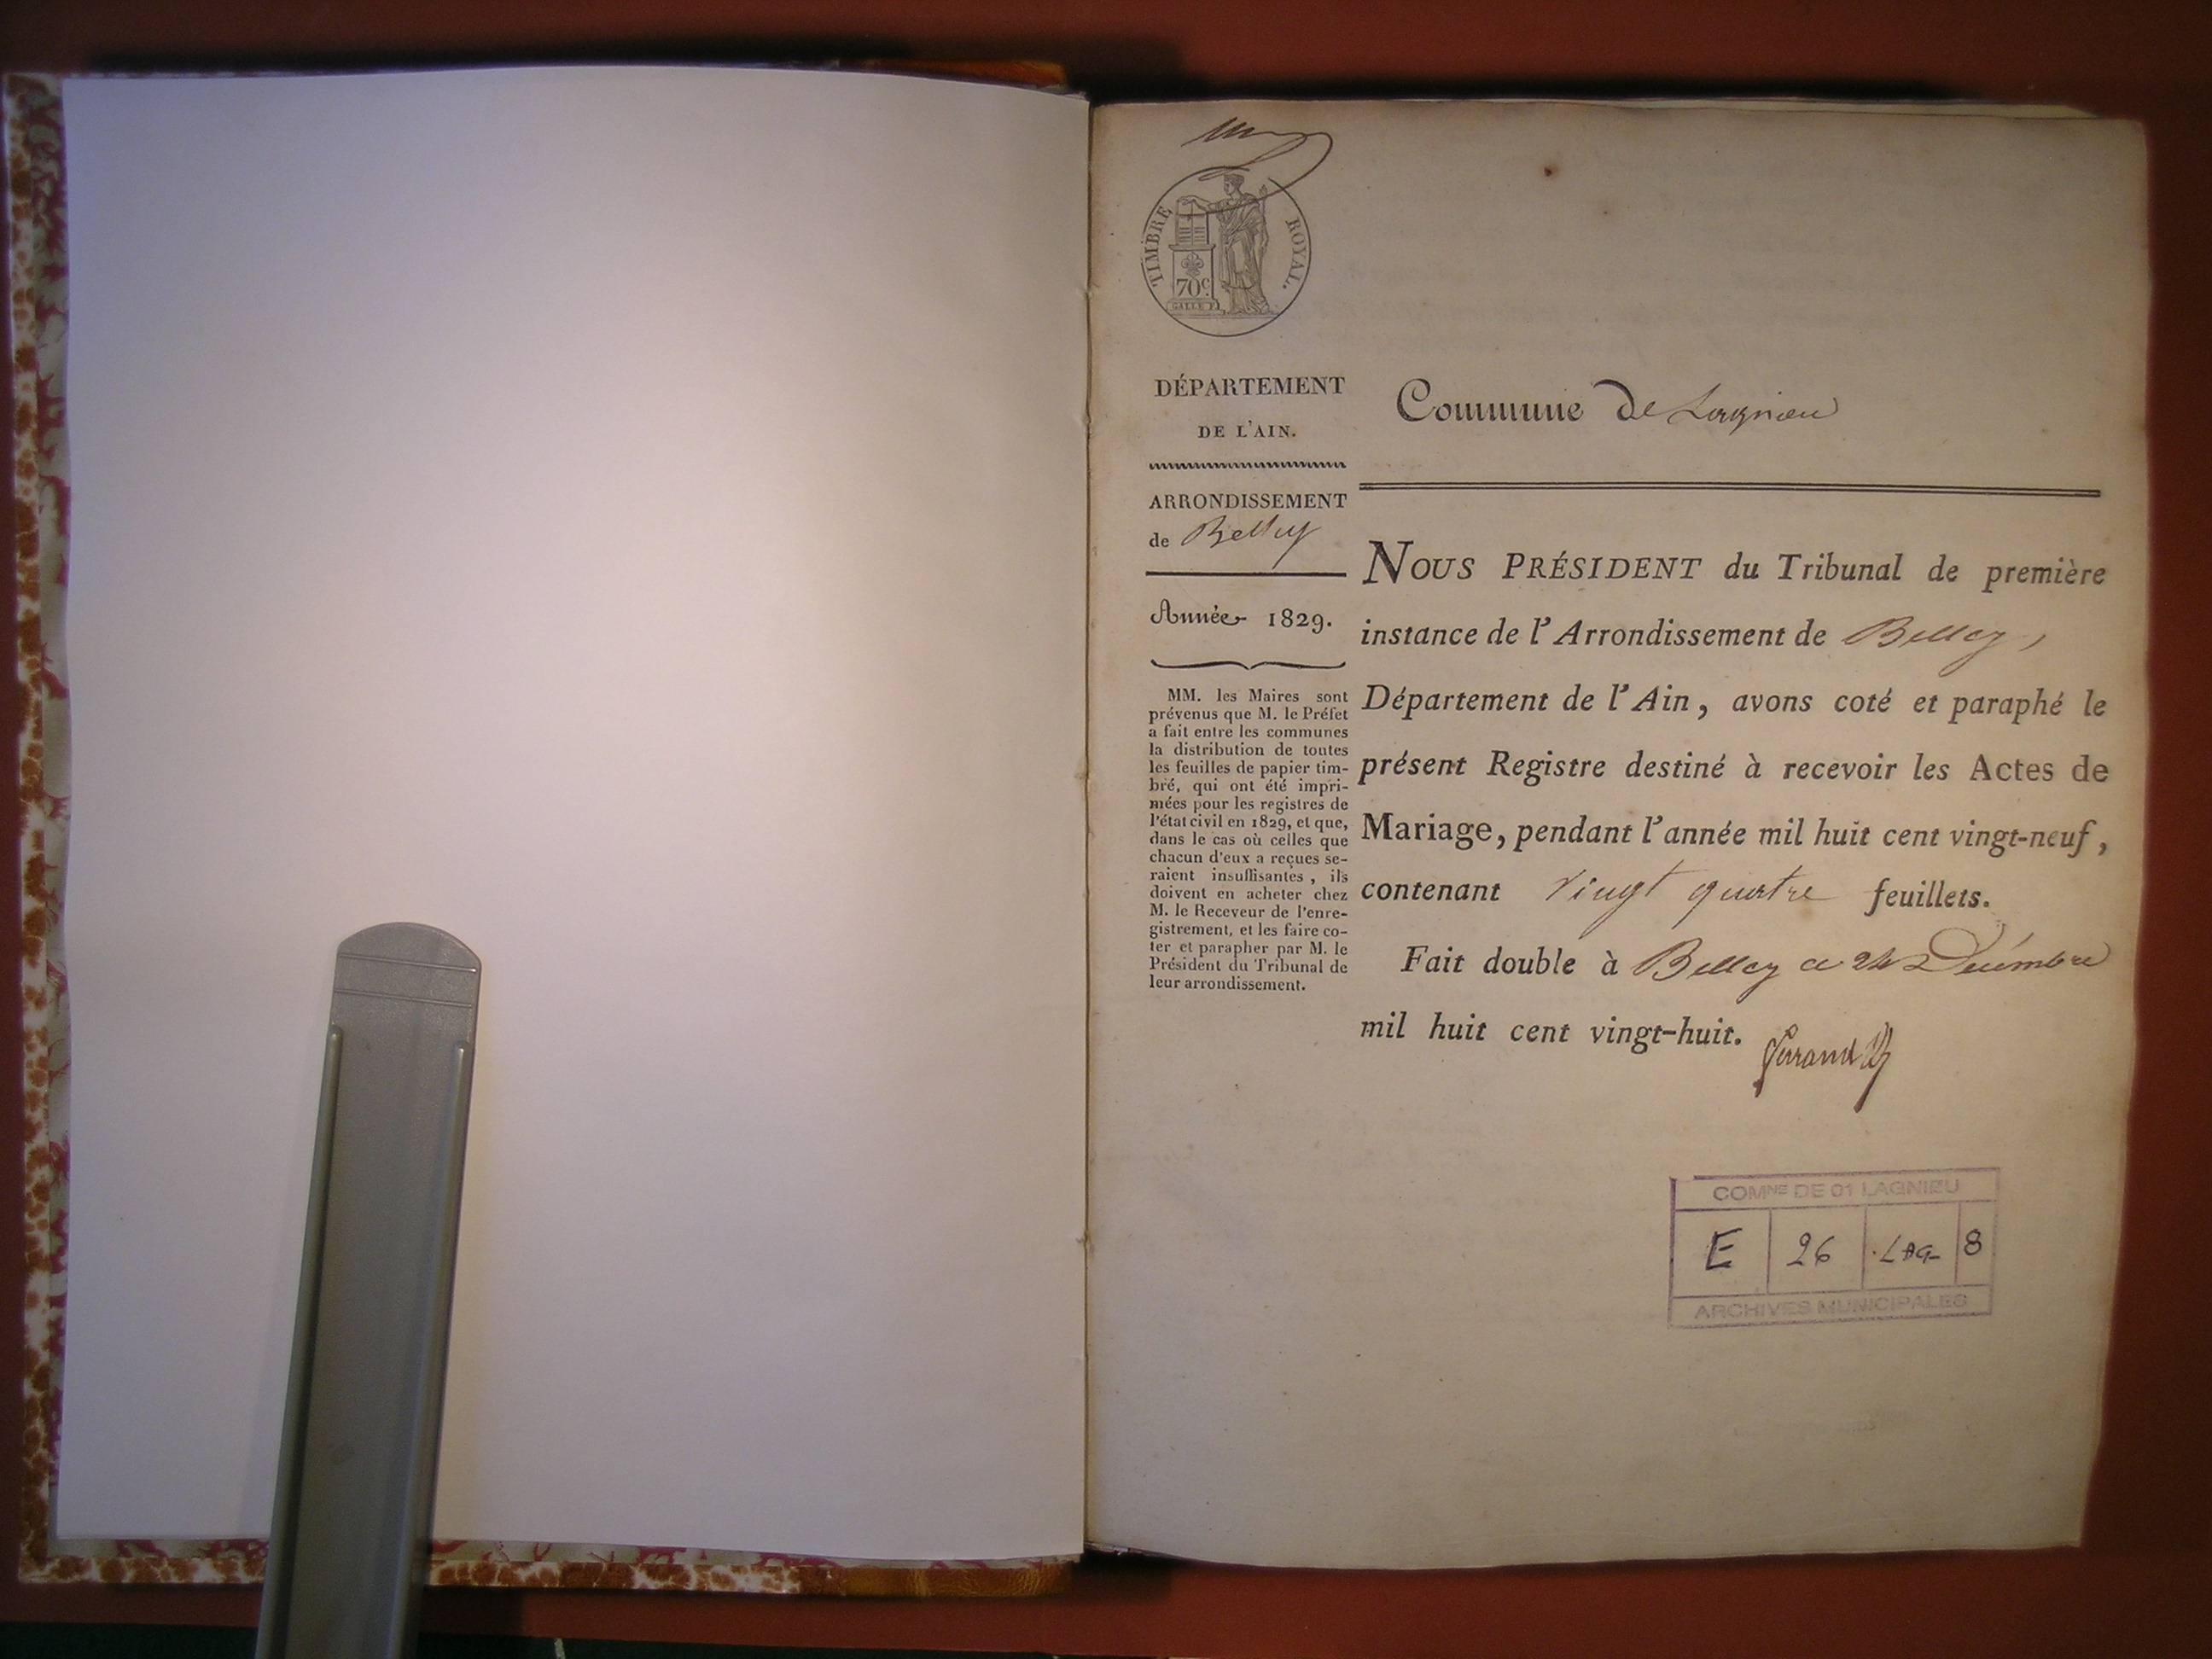 TIMBRE ROYAL.
70c.
GALLE F.
DÉPARTEMENT
DE L'AIN.
ARRONDISSEMENT
de Belley
Année 1829.
MM. les Maires sont
prévenus que M. le Préfet
a fait entre les communes
la distribution de toutes
les feuilles de papier tim-
bré, qui ont été impri-
mées pour les registres de
l'état civil en 1829, et que,
dans le cas où celles que
chacun d'eux a reçues se-
raient insuffisantes, ils
doivent en acheter chez
M. le Receveur de l'enre-
gistrement, et les faire co-
ter et parapher par M. le
Président du Tribunal de
leur arrondissement.
Commune de Lagnieu
NOUS PRÉSIDENT du Tribunal de première
instance de l'Arrondissement de Belley,
Département de l'Ain, avons coté et paraphé le
présent Registre destiné à recevoir les Actes de
Mariage, pendant l'année mil huit cent vingt-neuf,
contenant vingt quatre feuillets.
Fait double à Belley ce 24 Décembre
mil huit cent vingt-huit.
COMNE DE 01 LAGNIEU
E 26 LAG 8
ARCHIVES MUNICIPALES